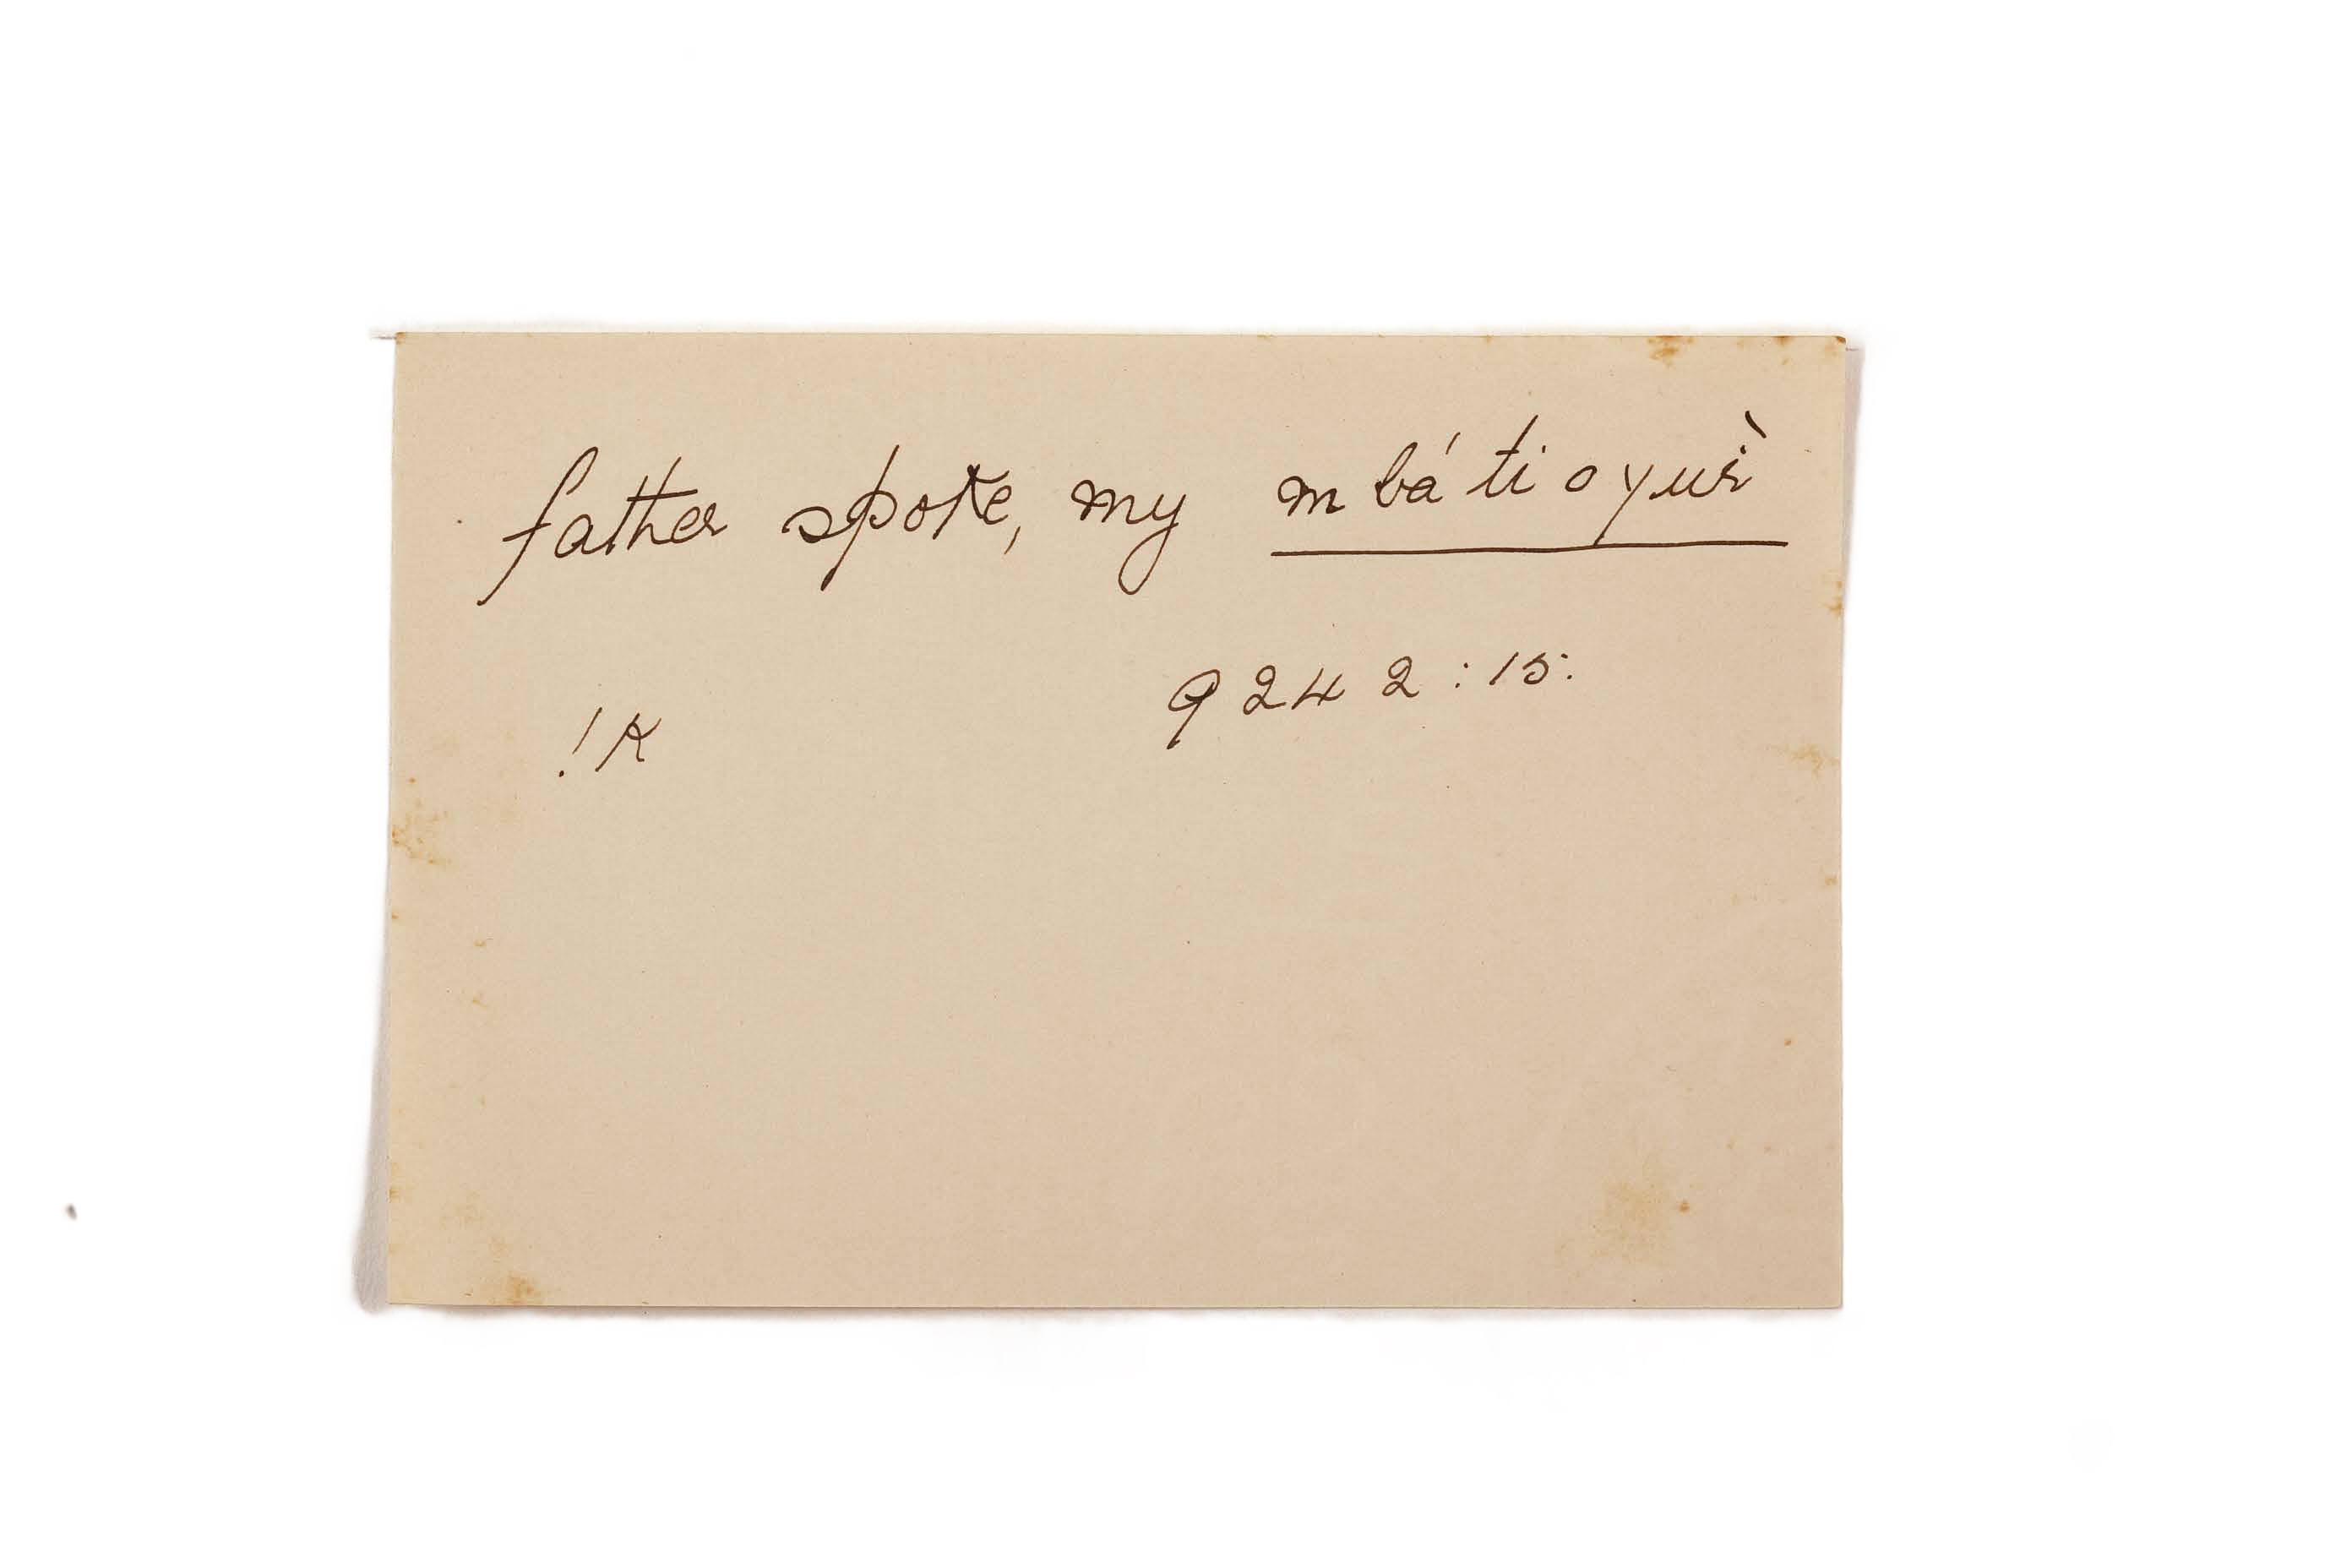 father spoke, my m bá ti o yuì
9242:15:
!K